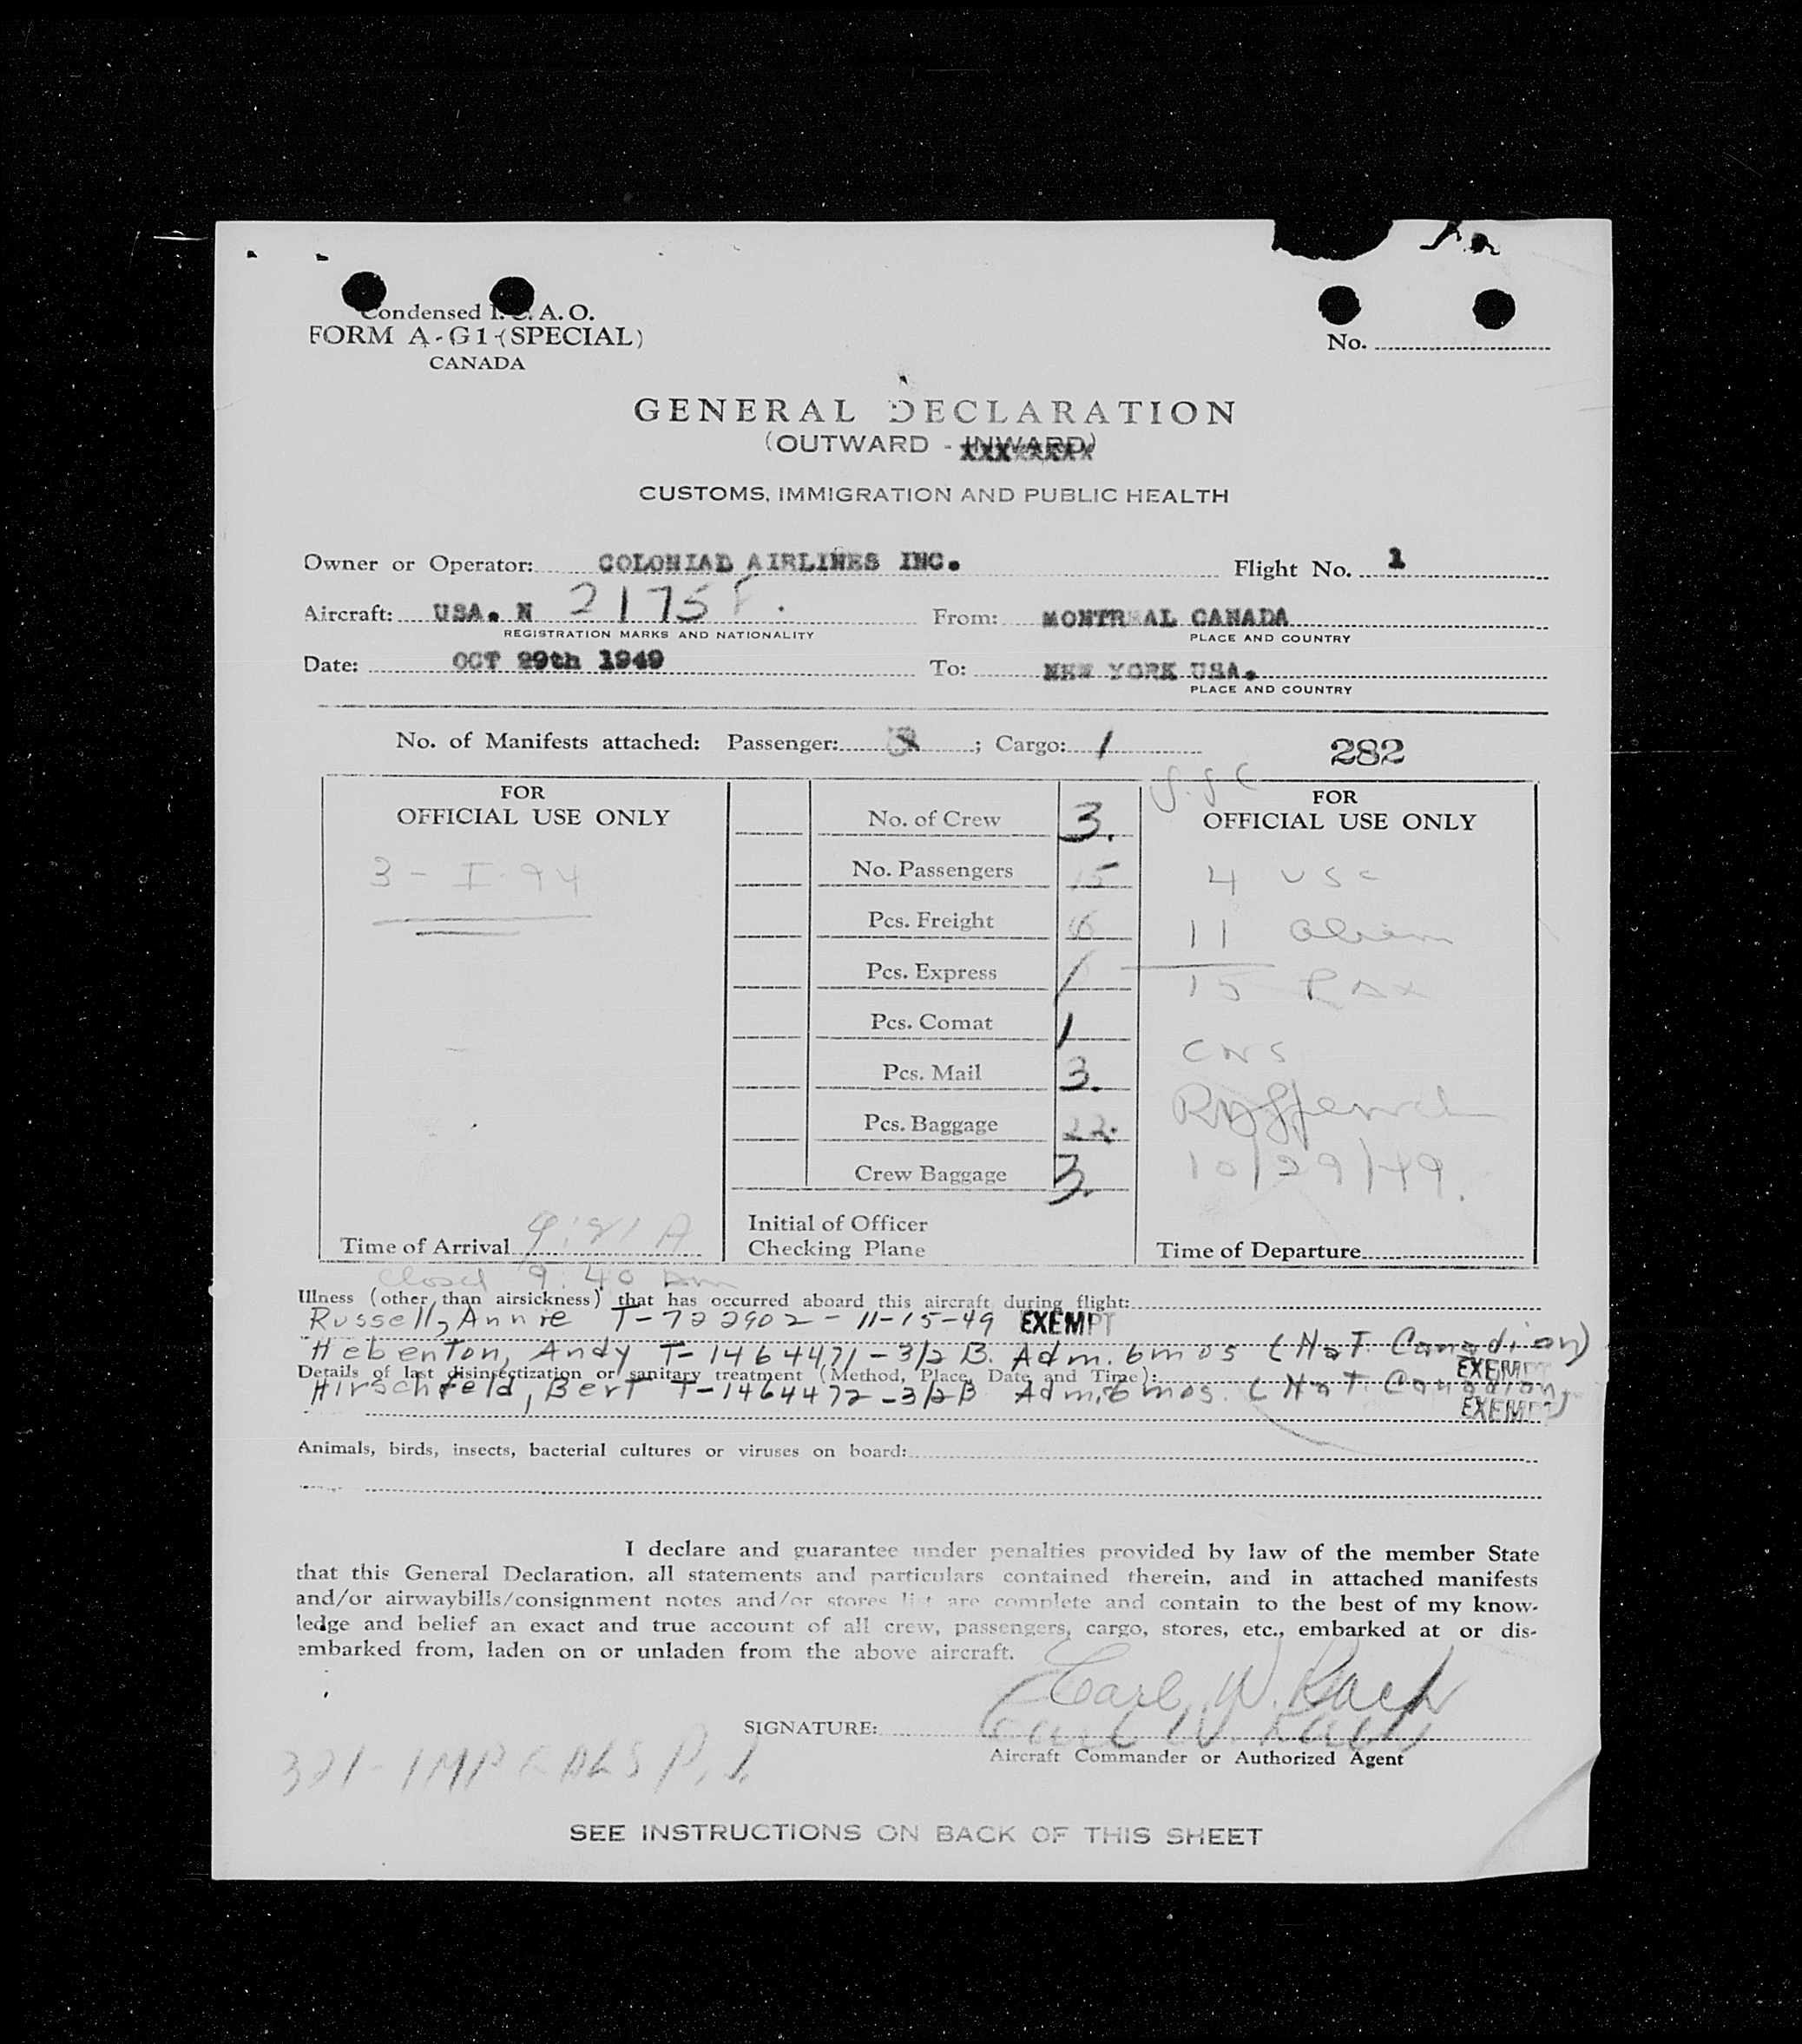 Condensed I. C. A. O.
FORM A-G1-(SPECIAL)
CANADA
No.
GENERAL DECLARATION
(OUTWARD - INWARD)
CUSTOMS, IMMIGRATION AND PUBLIC HEALTH
Owner or Operator: COLONIAL AIRLINES INC. Flight No. 1
Aircraft: USA. N 2175F. From: MONTREAL CANADA
REGISTRATION MARKS AND NATIONALITY PLACE AND COUNTRY
Date: OCT 29th 1949 To: NEW YORK USA.
PLACE AND COUNTRY
No. of Manifests attached: Passenger: ; Cargo: 1
282
FOR
OFFICIAL USE ONLY
3 - I-94
Time of Arrival
closed 9:40 am
No. of Crew 3.
No. Passengers 15
Pcs. Freight
Pcs. Express
Pcs. Comat 1
Pcs. Mail 3.
Pcs. Baggage 22.
Crew Baggage 3.
Initial of Officer
Checking Plane
FOR
OFFICIAL USE ONLY
4 USC
11 alien
15 Pax
CNS
10/29/49.
Time of Departure
Illness (other than airsickness) that has occurred aboard this aircraft during flight:
Russell, Annie T-722902 - 11-15-49 EXEMPT
Hebenton, Andy T-1464471 - 3/2 B. Adm. 6mos (Nat. Canadian)
EXEMPT
Details of last disinsectization or sanitary treatment (Method, Place, Date and Time):
Hirschfeld, Bert T-1464472 - 3/2B Adm. 6mos. (Nat. Canadian)
EXEMPT
Animals, birds, insects, bacterial cultures or viruses on board:
I declare and guarantee under penalties provided by law of the member State
that this General Declaration, all statements and particulars contained therein, and in attached manifests
and/or airwaybills/consignment notes and/or stores list are complete and contain to the best of my know-
ledge and belief an exact and true account of all crew, passengers, cargo, stores, etc., embarked at or dis-
embarked from, laden on or unladen from the above aircraft.
SIGNATURE: Carl W.
Aircraft Commander or Authorized Agent
SEE INSTRUCTIONS ON BACK OF THIS SHEET